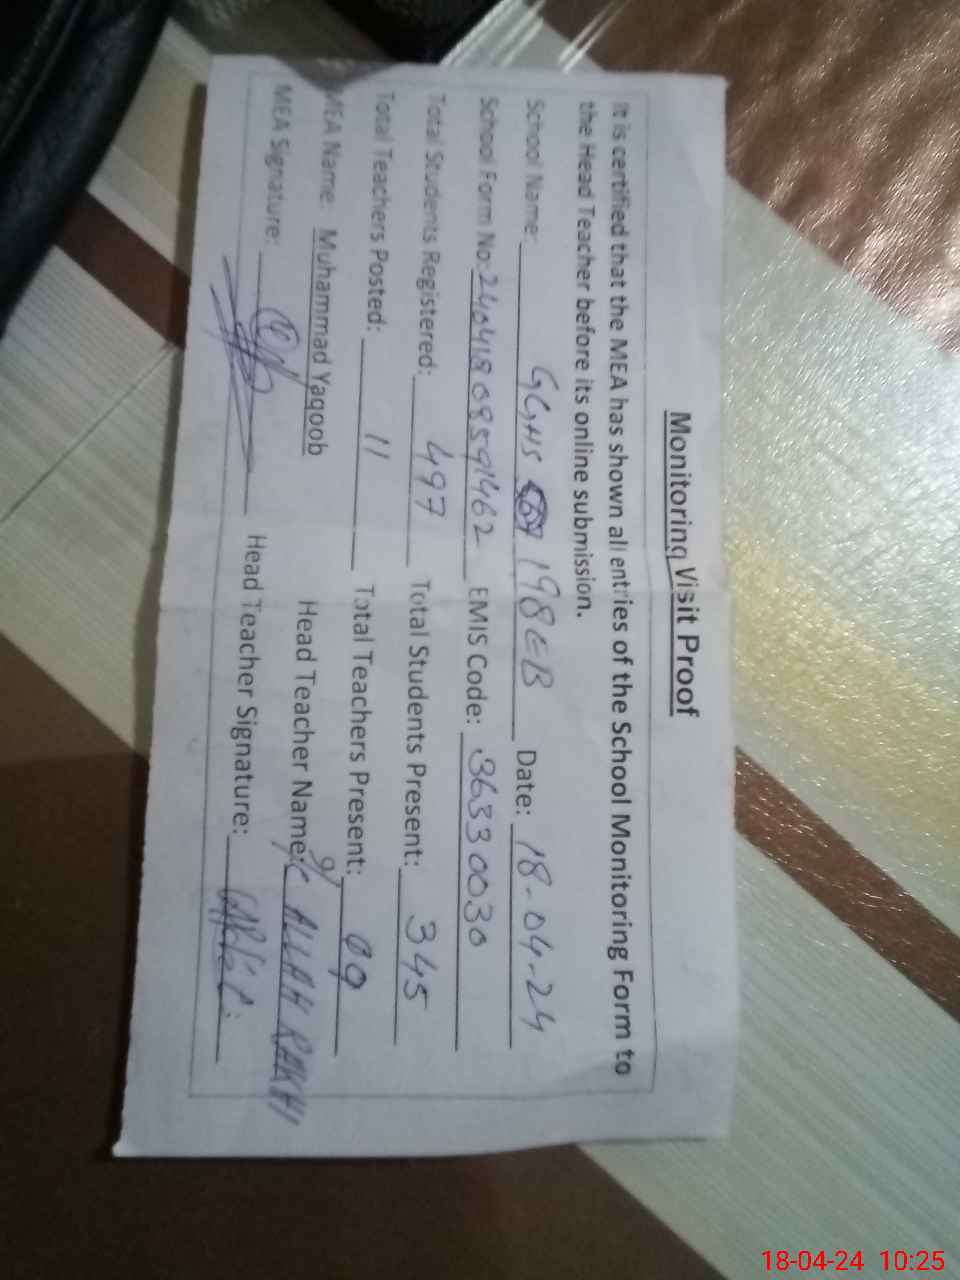 Monitoring Visit Proof
It is certified that the MEA has shown all entries of the School Monitoring Form to
the Head Teacher before its online submission.
School Name: GGHS 198 EB Date: 18-04-24
School Form No: 24041808591462 EMIS Code: 36330030
Total Students Registered: 497 Total Students Present: 345
Total Teachers Posted: 11 Total Teachers Present: 09
MEA Name: Muhammad Yaqoob Head Teacher Name: ALLAH RAKHI
MEA Signature: Head Teacher Signature:
18-04-24 10:25